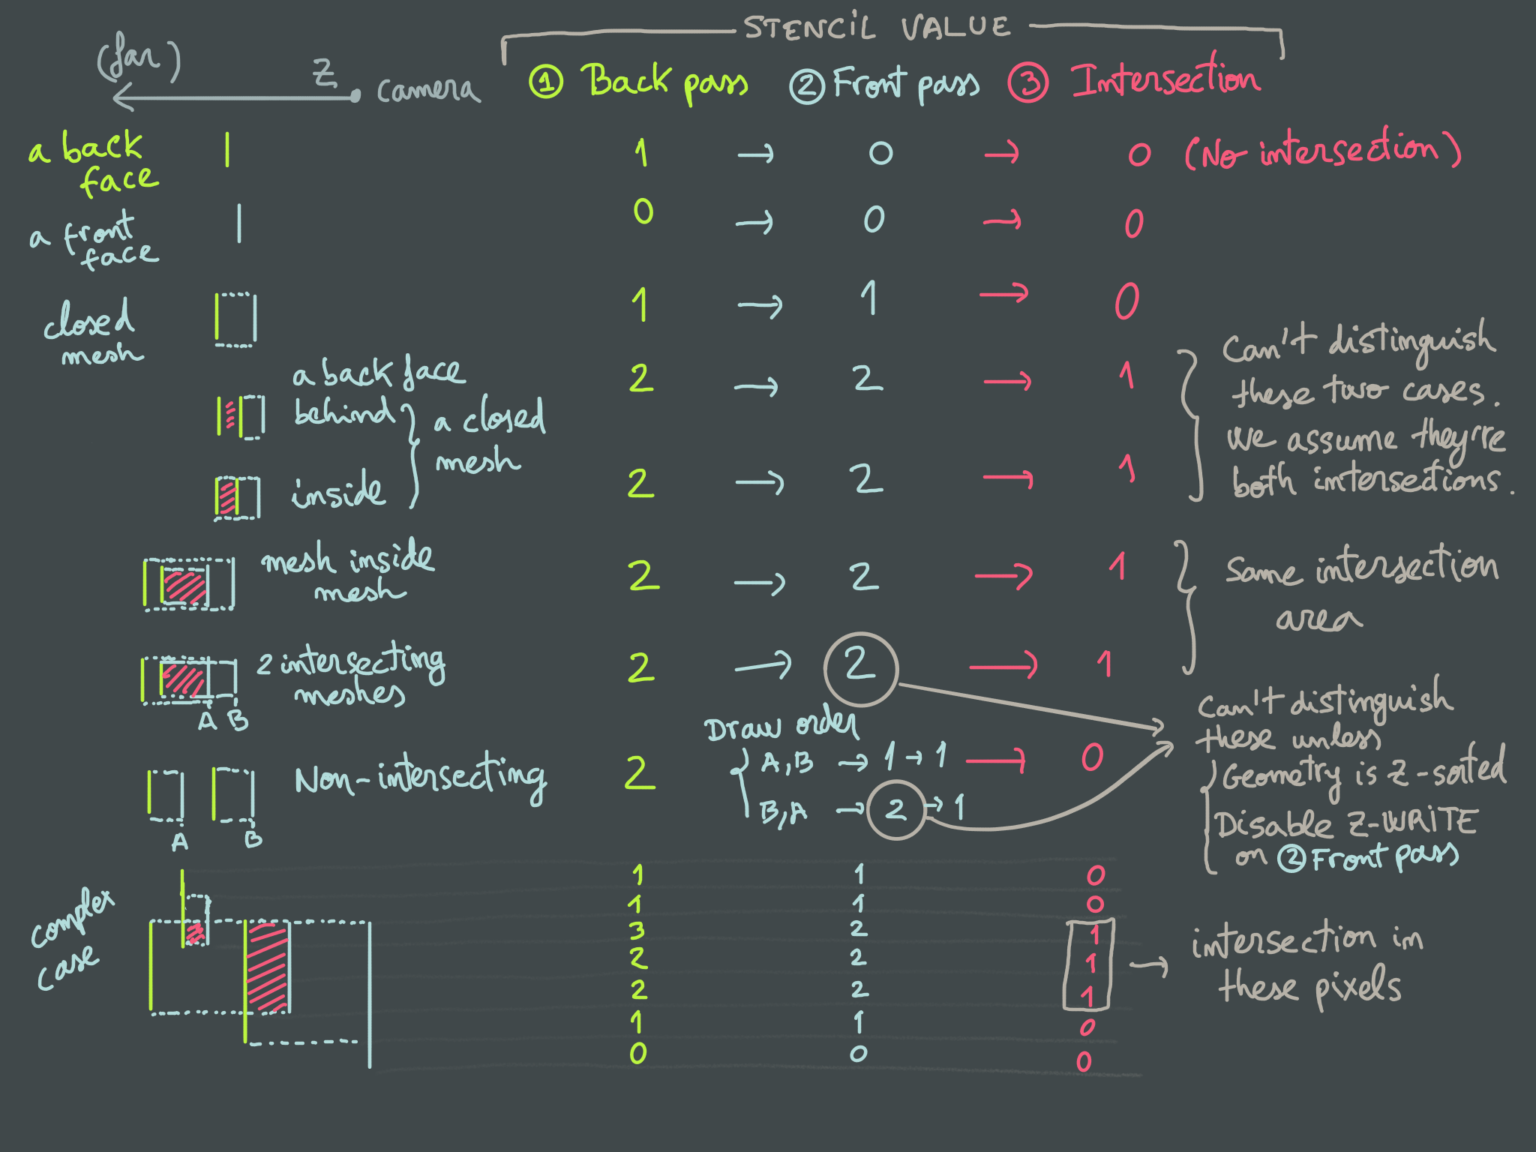 STENCIL VALUE
(far)
Z
camera
① Back pass
② Front pass
③ Intersection
a back
face
1 → 0 → 0 (No intersection)
a front
face
0 → 0 → 0
closed
mesh
1 → 1 → 0
a back face
behind
a closed
mesh
2 → 2 → 1
inside
2 → 2 → 1
Can't distinguish
these two cases.
We assume they're
both intersections.
mesh inside
mesh
2 → 2 → 1
2 intersecting
meshes
A B
2 → 2 → 1
Same intersection
area
Non-intersecting
A B
2
Draw order
A,B → 1 → 1 → 0
B,A → 2 → 1
Can't distinguish
these unless
Geometry is Z-sorted
Disable Z-WRITE
on ② Front pass
complex
case
1 1 0
1 1 0
3 2 1
2 2 1
2 2 1
1 1 0
0 0 0
→ intersection in
these pixels